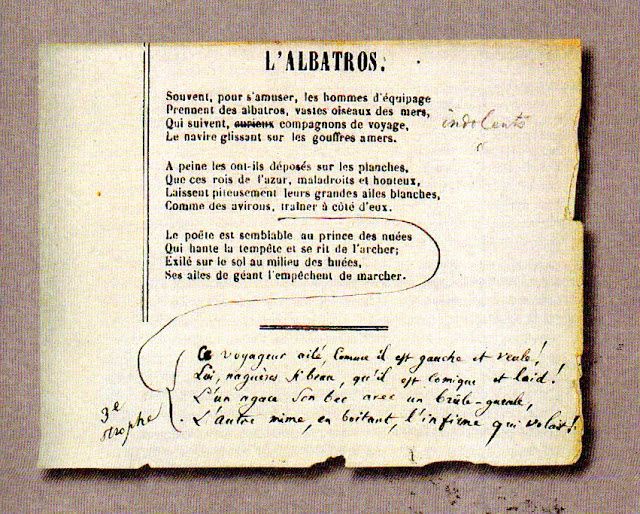 L'ALBATROS.
Souvent, pour s'amuser, les hommes d'équipage
Prennent des albatros, vastes oiseaux des mers,
Qui suivent, curieux compagnons de voyage, indolents
Le navire glissant sur les gouffres amers.
A peine les ont-ils déposés sur les planches,
Que ces rois de l'azur, maladroits et honteux,
Laissent piteusement leurs grandes ailes blanches,
Comme des avirons, traîner à côté d'eux.
Le poëte est semblable au prince des nuées
Qui hante la tempête et se rit de l'archer;
Exilé sur le sol au milieu des huées,
Ses ailes de géant l'empêchent de marcher.
Ce voyageur ailé, comme il est gauche et veule!
Lui, naguères si beau, qu'il est comique et laid!
L'un agace son bec avec un brûle-gueule,
L'autre mime, en boitant, l'infirme qui volait!
3e
strophe